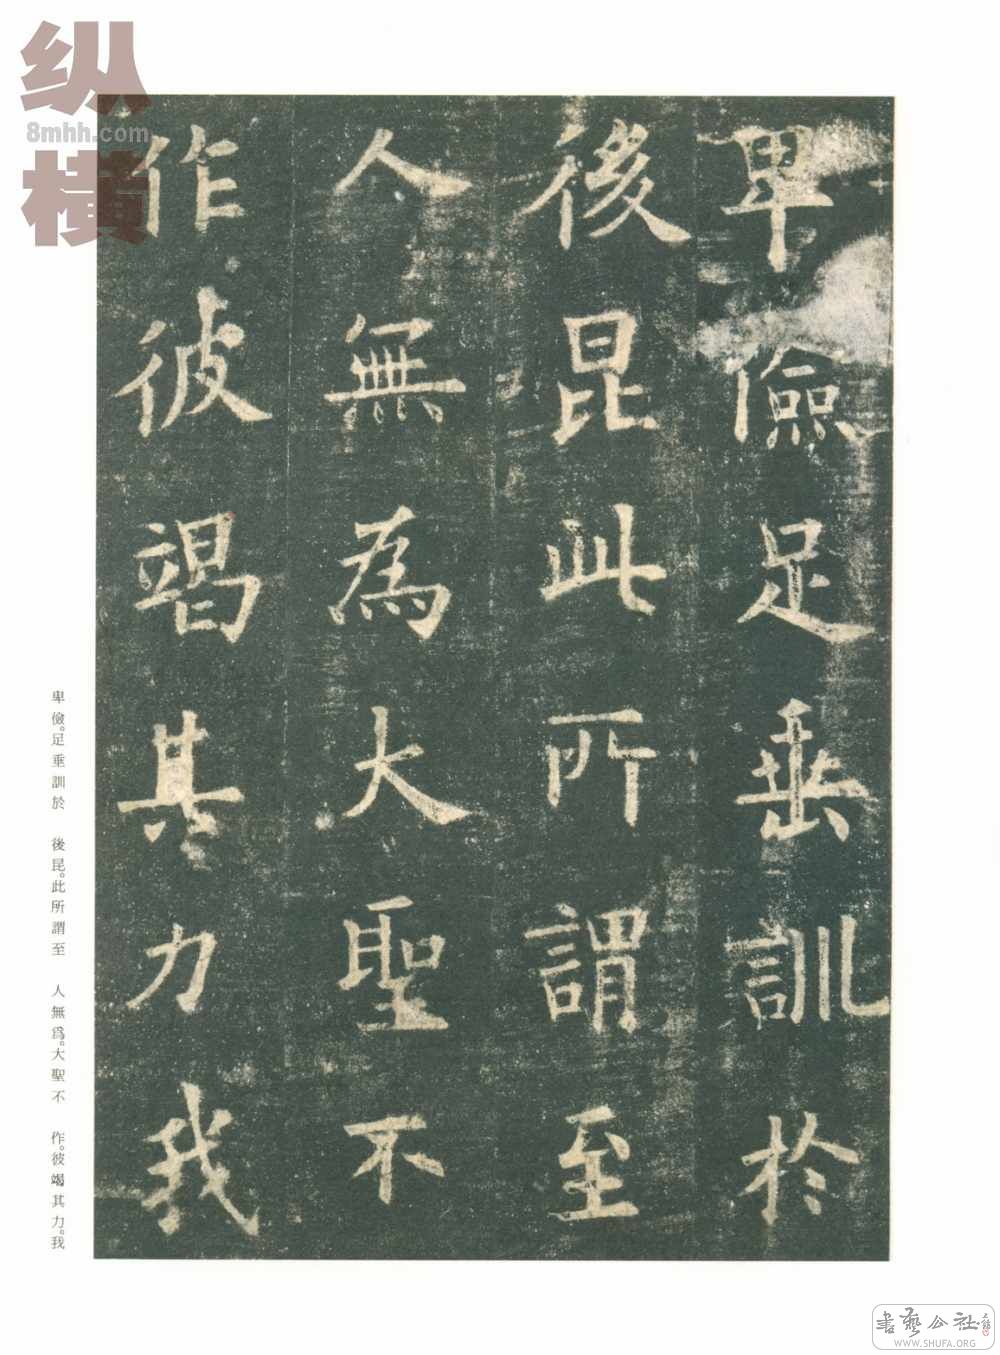 卑儉足垂訓於
後昆此所謂至
人無為大聖不
作彼竭其力我
卑儉。足垂訓於 後昆。此所謂至 人無爲。大聖不 作。彼竭其力。我
纵横
8mhh.com
書藝公社
WWW.SHUFA.ORG